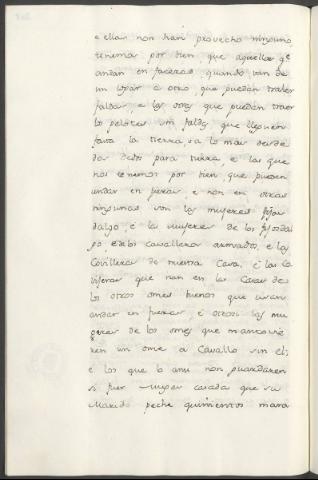 e ellas non han provecho ninguno,
tenemos por bien que aquellas qe
andan en faceras, quando van de
un lugar a otro, que puedan traher
faldas, e las otras que puedan traer
los pelotes sin falda, que lleguen
fasta la tierra, o a lo mas desde
dos dedos para tierra, e las que
nos tenemos por bien, que pueden
andar en e non en otras
ningunas son las mugeres fijas
dalgo, é la mugeres de los fijosdal
go e de los cavalleros armados, e las
Covilleras de nuestra Casa, é las
que van en las Casas de
los otros omes buenos que usan
andar en é otrosi las mu
geres de los omes que
ren un ome a Cavallo sin él;
e los que lo ansi non guardaren
si fuer muger casada que su
Marido peche quinientos mara